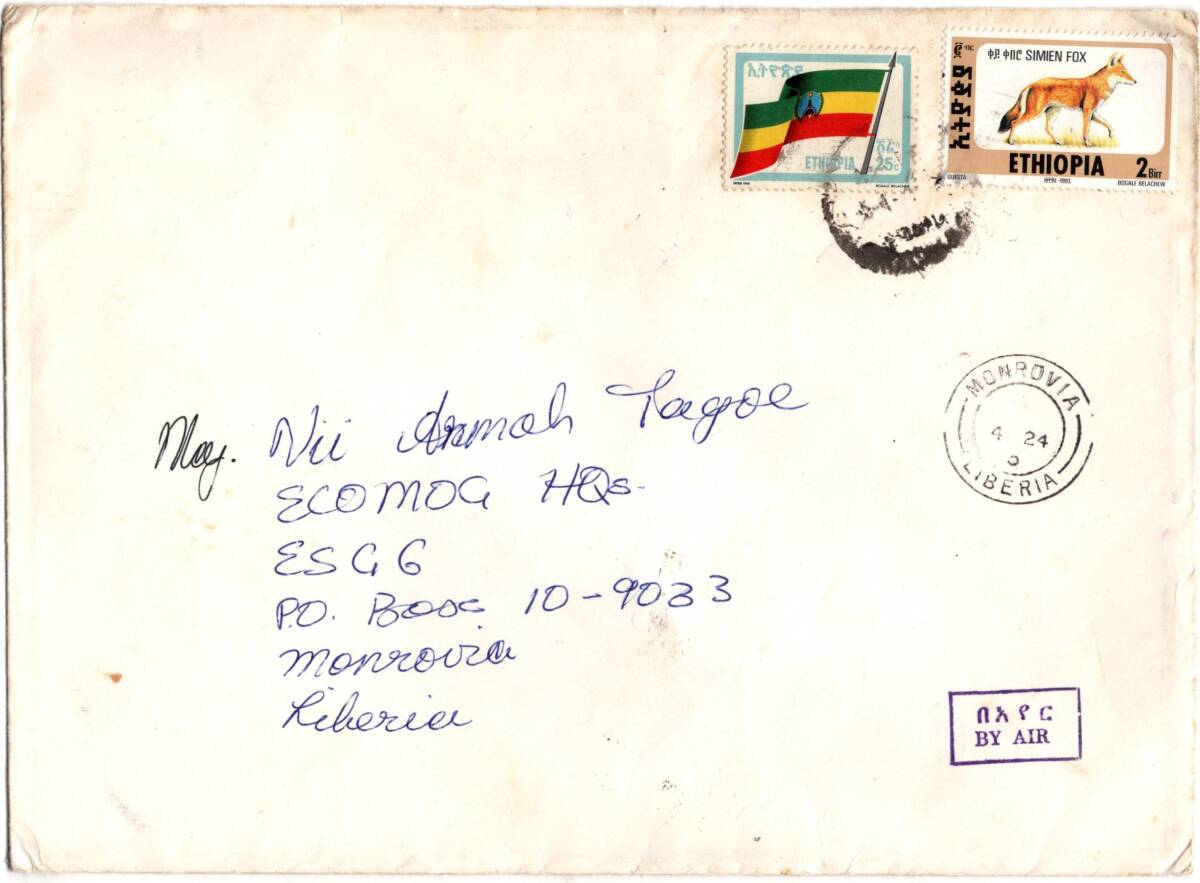 ኢትዮጵያ
ETHIOPIA
25c
BOGALE BELACHEW
ብር
ቀይ ቀበሮ SIMIEN FOX
ኢትዮጵያ
ETHIOPIA
2 Birr
1993
BOGALE BELACHEW
MONROVIA
4 24
LIBERIA
Maj. Nii Armah Tagoe
ECOMOG HQs.
ESGG
P.O. Box 10-9033
Monrovia
Liberia
በአየር
BY AIR